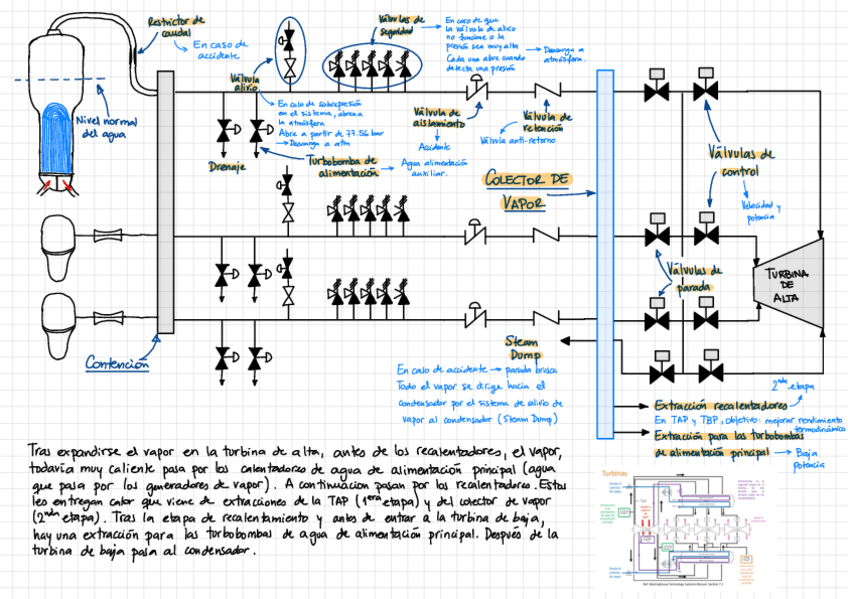 Restrictor de
caudal
En caso de
accidente
Nivel normal
del agua
Válvula
alivio
En caso de sobrepresión
en el sistema, abren a
la atmósfera
Abre a partir de 77.56 bar
→ Descarga a atm
Válvulas de
seguridad
En caso de que
la válvula de alivio
no funcione o la
presión sea muy alta
Cada una abre cuando
detecta una presión
Descarga a
atmósfera.
Drenaje
Turbobomba de
alimentación
Agua alimentación
auxiliar.
Válvula de
aislamiento
Accidente
Válvula de
retención
Válvula anti-retorno
COLECTOR DE
VAPOR
Válvulas de
control
Velocidad y
potencia
Válvulas de
parada
TURBINA
DE
ALTA
Contención
Steam
Dump
En caso de accidente → parada brusca
Todo el vapor se dirige hacia el
condensador por el sistema de alivio de
vapor al condensador (Steam Dump)
2nda etapa
Extracción recalentadores
En TAP y TBP, objetivo: mejorar rendimiento
termodinámico
Extracción para las turbobombas
de alimentación principal → Baja
potencia
Tras expandirse el vapor en la turbina de alta, antes de los recalentadores, el vapor,
todavía muy caliente pasa por los calentadores de agua de alimentación principal (agua
que pasa por los generadores de vapor). A continuación pasan por los recalentadores. Estos
les entregan calor que viene de extracciones de la TAP (1era etapa) y del colector de vapor
(2nda etapa). Tras la etapa de recalentamiento y antes de entrar a la turbina de baja,
hay una extracción para las turbobombas de agua de alimentación principal. Después de la
turbina de baja pasa al condensador.
Turbinas